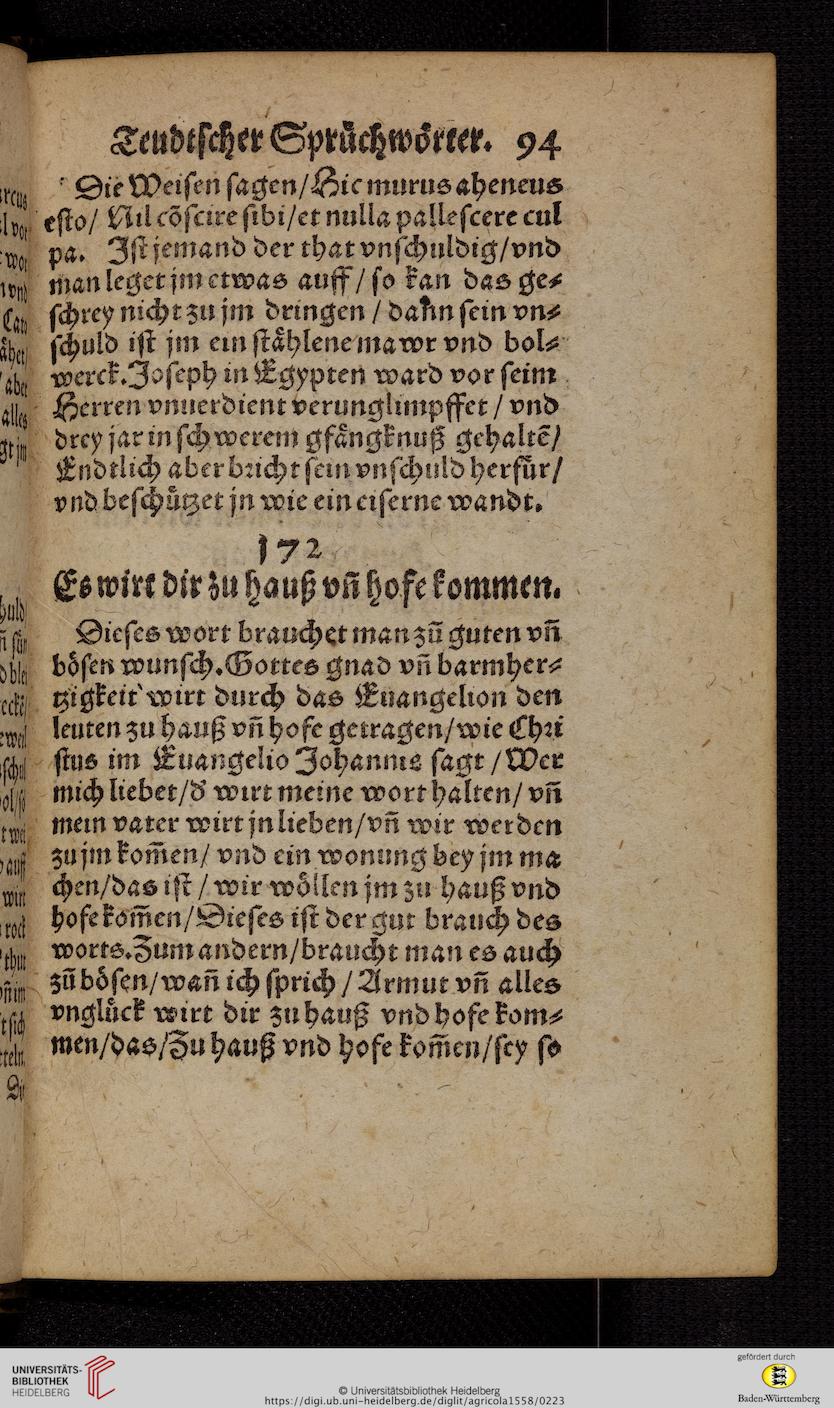 Teudtscher Sprůchwörter. 94
Die Weisen sagen/Hic murus aheneus
esto/ Nil cõscire sibi/et nulla pallescere cul
pa. Ist jemand der that vnschuldig/vnd
man leget jm etwas auff / so kan das ge⸗
schrey nicht zu jm dringen / dann sein vn⸗
schuld ist jm ein stählene mawr vnd bol⸗
werck. Joseph in Egypten ward vor seim
Herren vnuerdient verunglimpffet / vnd
drey jar in schwerem gfängknuß gehaltẽ/
Endtlich aber bricht sein vnschuld herfür/
vnd beschützet jn wie ein eiserne wandt.
172
Es wirt dir zu hauß vñ hofe kommen.
Dieses wort brauchet man zů guten vñ
bösen wunsch. Gottes gnad vñ barmher⸗
tzigkeit wirt durch das Euangelion den
leuten zu hauß vñ hofe getragen/wie Chri
stus im Euangelio Johannis sagt / Wer
mich liebet/d' wirt meine wort halten/ vñ
mein vater wirt jn lieben/vñ wir werden
zu jm kom̃en/ vnd ein wonung bey jm ma
chen/das ist / wir wöllen jm zu hauß vnd
hofe kom̃en/Dieses ist der gut brauch des
worts. Zum andern/braucht man es auch
zů bösen/wañ ich sprich / Armut vñ alles
vnglück wirt dir zu hauß vnd hofe kom⸗
men/das/Zu hauß vnd hofe kom̃en/sey so
UNIVERSITÄTS-
BIBLIOTHEK
HEIDELBERG
© Universitätsbibliothek Heidelberg
https://digi.ub.uni-heidelberg.de/diglit/agricola1558/0223
gefördert durch
Baden-Württemberg